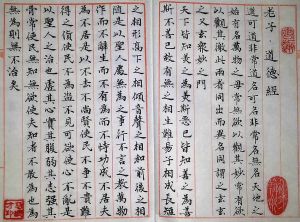 老子 道德經
道可道非常道名可名非常名無名天地之
始有名萬物之母故常無欲以觀其妙常有欲
以觀其徼此兩者同出而異名同謂之玄玄
之又玄眾妙之門
天下皆知美之為美斯惡已皆知善之為善
斯不善已故有無之相生難易之相成長短
之相形高下之相傾音聲之相和前後之相
隨是以聖人處無為之事行不言之教萬物
作而不辭生而不有為而不恃功成不居夫
唯不居是以不去不尚賢使民不爭不貴難
得之貨使民不為盜不見可欲使心不亂是
以聖人之治也虛其心實其腹弱其志強其
骨常使民無知無欲使夫知者不敢為也為
無為則無不治矣